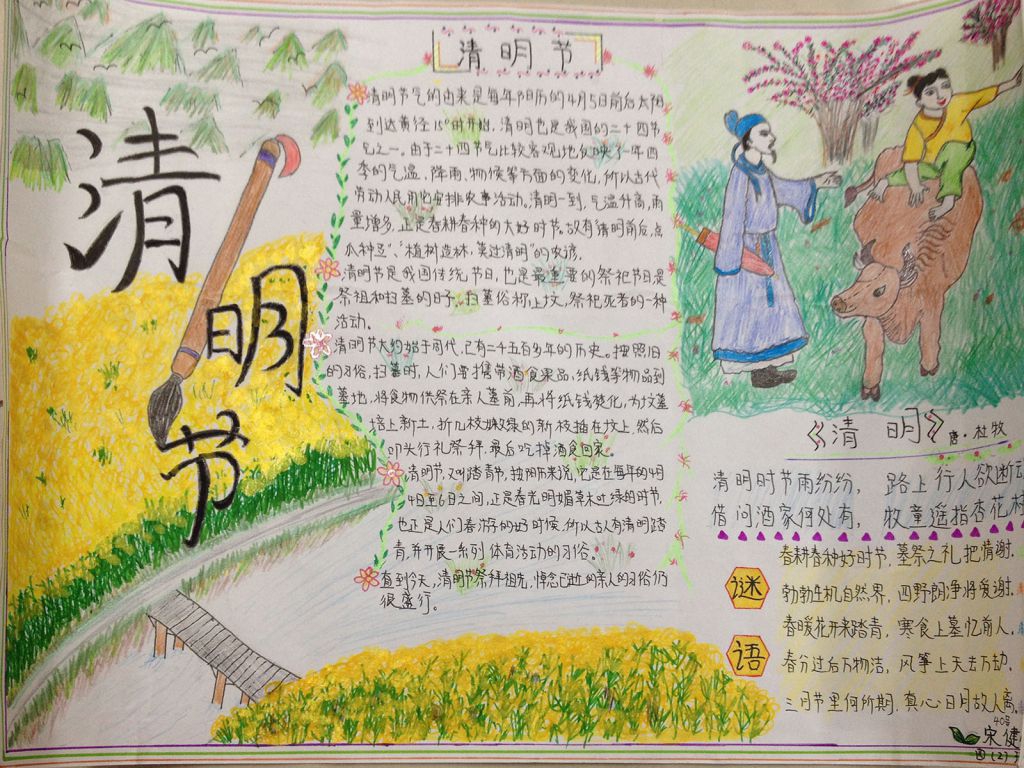 清明节
清明节
清明节气的由来是每年阳历的4月5日前后太阳
到达黄径15°时开始,清明也是我国的二十四节
气之一。由于二十四节气比较客观地反映了一年四
季的气温、降雨、物候等方面的变化,所以古代
劳动人民用它安排农事活动。清明一到,气温升高,雨
量增多,正是春耕春种的大好时节。故有清明前后,点
瓜种豆”、“植树造林,莫过清明”的农谚.
清明节是我国传统节日,也是最重要的祭祀节日是
祭祖和扫墓的日子。扫墓俗称上坟,祭祀死者的一种
活动。
清明节大约始于周代,已有二千五百多年的历史。按照旧
的习俗,扫墓时,人们要携带酒食果品,纸钱等物品到
墓地,将食物供祭在亲人墓前,再将纸钱焚化,为坟墓
培上新土,折几枝嫩绿的新枝插在坟上,然后
叩头行礼祭拜,最后吃掉酒食回家。
清明节,又叫踏青节,按阳历来说,它是在每年的4月
4日至6日之间,正是春光明媚草木吐绿的时节,
也正是人们春游的好时候,所以古人有清明踏
青,并开展一系列体育活动的习俗。
直到今天,清明节祭拜祖先,悼念已逝的亲人的习俗仍
很盛行。
《清 明》 唐·杜牧
清明时节雨纷纷, 路上行人欲断
借问酒家何处有, 牧童遥指杏花村
谜语
春耕春种好时节,墓祭之礼把情谢.
勃勃生机自然界,四野朗净将爱谢.
春暖花开来踏青,寒食上墓忆前人.
春分过后万物洁,风筝上天去万劫.
三月节里何所期,真心日月故人离.
40号
宋健